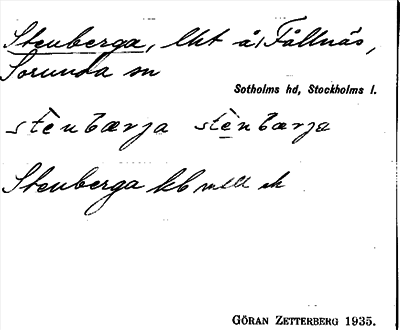 Stenberga, lht å Fållnäs,
Sorunda sn
Sotholms hd, Stockholms l.
stènbærja stènbærja
Stenberga kb
GÖRAN ZETTERBERG 1935.